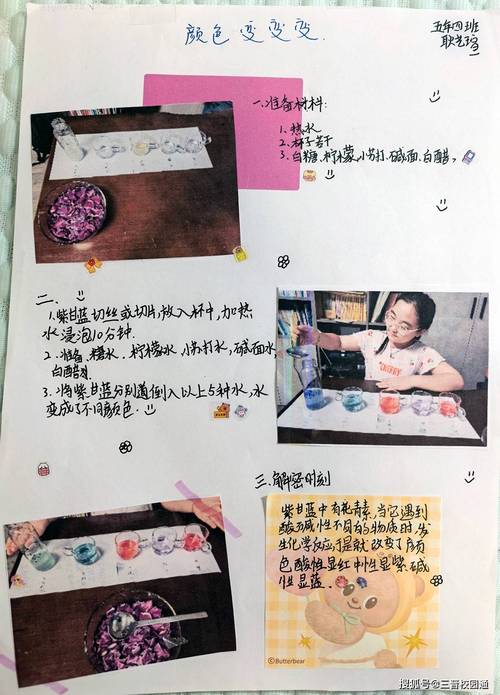 颜色变变变.
五年四班
一、准备材料:
1、热水
2、杯子若干
3、白糖、柠檬、小苏打、碱面、白醋。
二、
1、紫甘蓝切丝或切片,放入杯中,加热
水浸泡10分钟.
2、准备糖水、柠檬水、小苏打水,碱面水
白醋
3、将紫甘蓝分别倒入以上5种水,水
变成了不同颜色.
三、解密时刻
紫甘蓝中有花青素,当它遇到
酸碱性不同的物质时,发
生化学反应于是就改变了颜
色酸性显红中性显紫,碱
性显蓝.
©Butterbear
搜狐号@三晋校园通